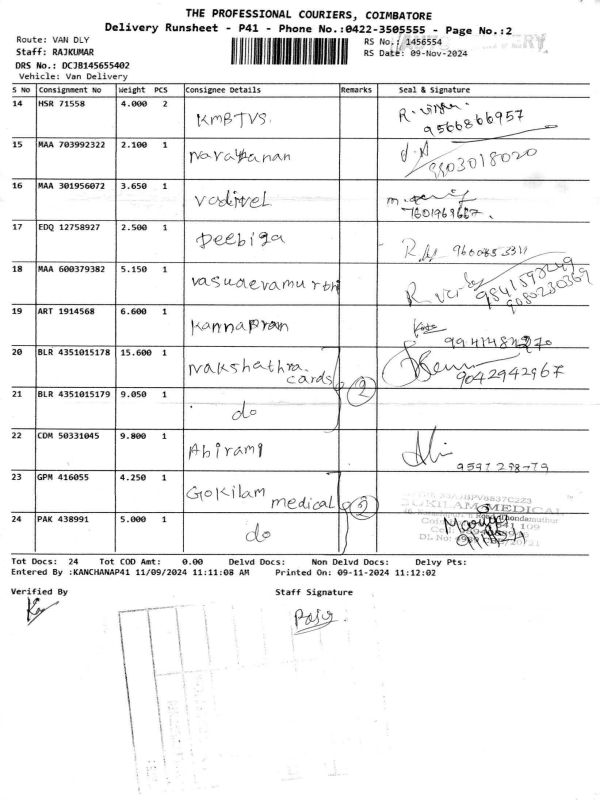 THE PROFESSIONAL COURIERS, COIMBATORE
Delivery Runsheet - P41 - Phone No.:0422-3505555 - Page No.:2
Route: VAN DLY
RS No.: 1456554
Staff: RAJKUMAR
RS Date: 09-Nov-2024
DRS No.: DCJB145655402
Vehicle: Van Delivery
S No Consignment No Weight PCS Consignee Details Remarks Seal & Signature
14 HSR 71558 4.000 2 KMBTVS.
9566866957
15 MAA 703992322 2.100 1 Narayanan
9903018020
16 MAA 301956072 3.650 1 Vadivel
7601969667.
17 EDQ 12758927 2.500 1 Deebiga
18 MAA 600379382 5.150 1 vasudevamurthi
9080230369
19 ART 1914568 6.600 1 Kannappan
20 BLR 4351015178 15.600 1 Nakshathra.
cards
2
9042942967
21 BLR 4351015179 9.050 1 do
22 CDM 50331045 9.800 1 Abirami
23 GPM 416055 4.250 1 Gokilam medical
2
GOKILAM MEDICAL
24 PAK 438991 5.000 1 do
Tot Docs: 24 Tot COD Amt: 0.00 Delvd Docs: Non Delvd Docs: Delvy Pts:
Entered By :KANCHANAP41 11/09/2024 11:11:08 AM Printed On: 09-11-2024 11:12:02
Verified By
Staff Signature